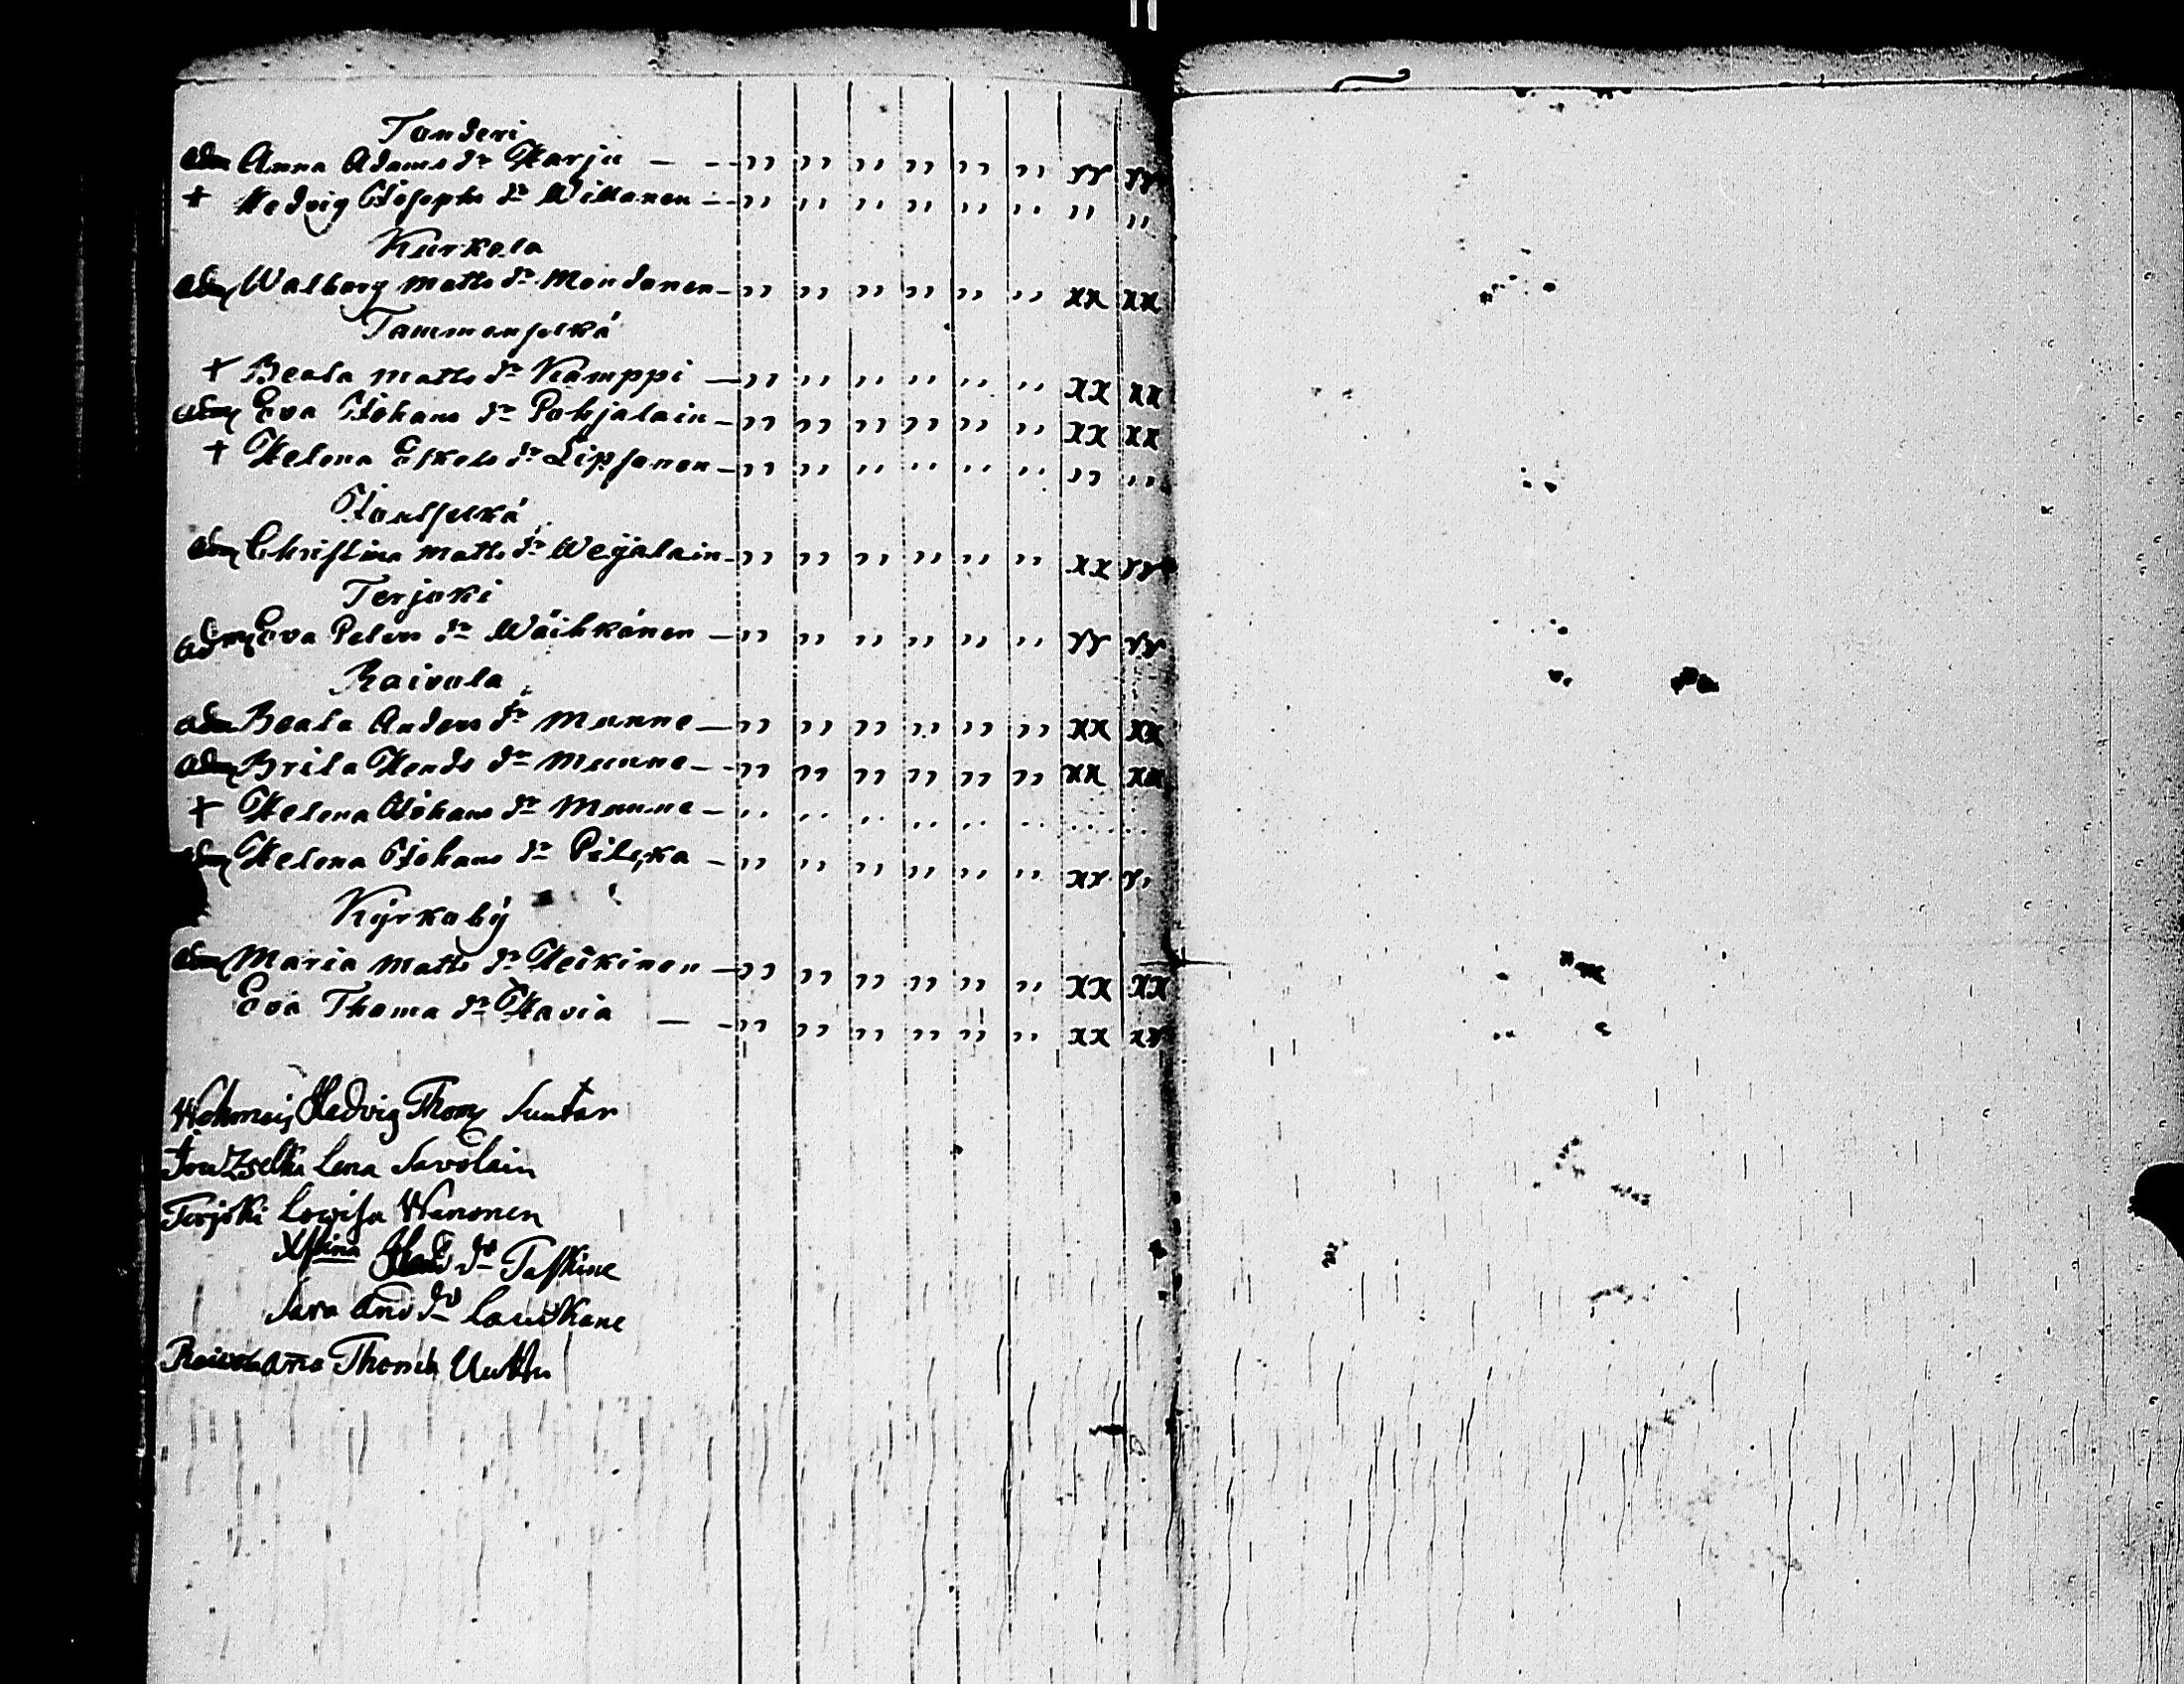 Tonderi
adm Anna Adams dr Harju — - ,, ,, ,, ,, ,, ,, xx xx
+ Hedvig Josephs dr Willanen - ,, ,, ,, ,, ,, ,, ,, ,,
Kurkela
adm Walborg Matts dr Mondanen - ,, ,, ,, ,, ,, ,, xx xx
Tammenselkä
+ Beata Matts dr Kämppi — ,, ,, ,, ,, ,, ,, xx xx
adm Eva Johans dr Pohjalain - ,, ,, ,, ,, ,, ,, xx xx
+ Helena Eskels dr Lipsonen - ,, ,, ,, ,, ,, ,, ,, ,,
Joutselkä
adm Christina Matts dr Weijalain - ,, ,, ,, ,, ,, ,, xx xx
Terjoki
adm Eva Peters dr Wäihkänen — ,, ,, ,, ,, ,, ,, xx xx
Raivola
adm Beata Anders dr Munne — ,, ,, ,, ,, ,, ,, xx xx
adm Brita Hends dr Munne - - ,, ,, ,, ,, ,, ,, xx xx
+ Helena Johans dr Munne - ,, ,, ,, ,, ,, ,, ,, ,,
adm Helena Johans dr - ,, ,, ,, ,, ,, ,, xx x,
Kyrkoby
adm Maria Matts dr Heikinen — ,, ,, ,, ,, ,, ,, xx xx
Eva Thoma dr Havia — - ,, ,, ,, ,, ,, ,, xx xx
Hedvig Thom Suntar
Lena Savolain
Terjoki Lovisa Hanonen
Xstina dr Taskine
Sara And dr Lauskane
Raivola Ana Thoms Uuttu